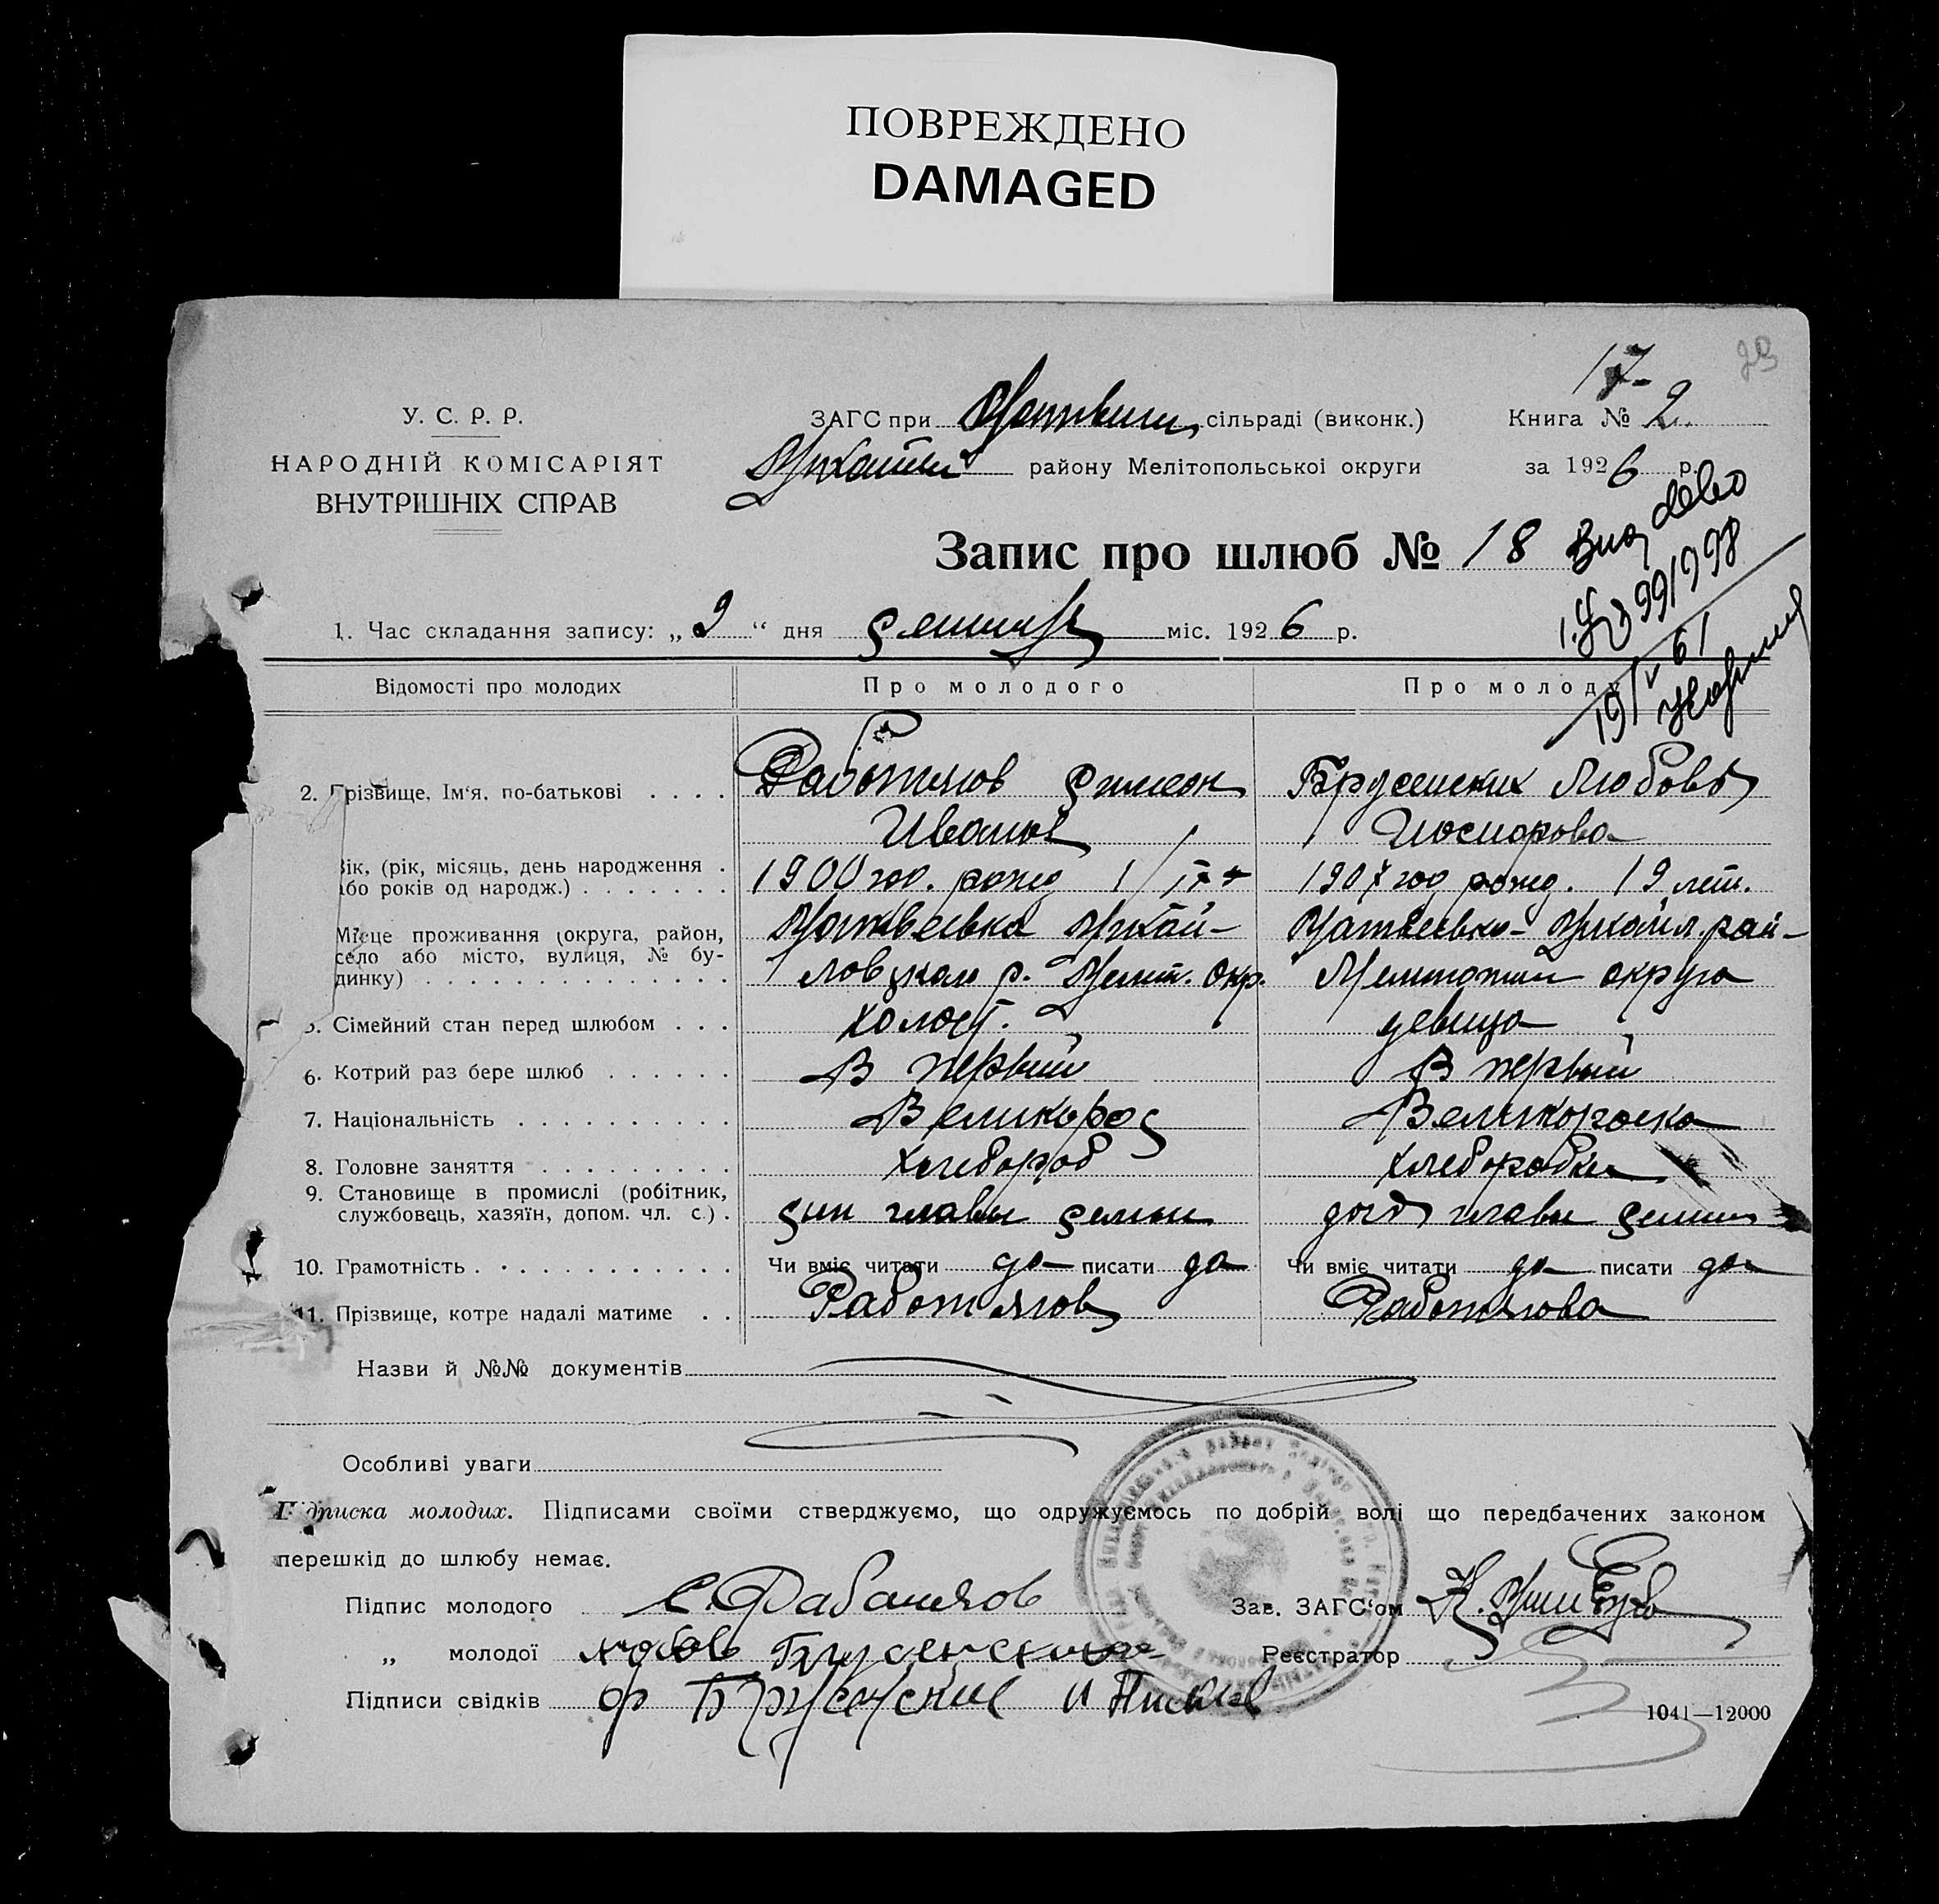 ПОВРЕЖДЕНО
DAMAGED
17
У. С. Р. Р.
НАРОДНІЙ КОМІСАРІЯТ
ВНУТРІШНІХ СПРАВ
ЗАГС при сільраді (виконк.)
району Мелітопольської округи
Книга № 2
за 1926 р.
Запис про шлюб № 18
1. Час складання запису: „2“ дня міс. 1926 р.
Відомості про молодих Про молодого Про молоду
2. Прізвище, Ім‘я, по-батькові Работягов Симеон Любовь
Иванов
Вік, (рік, місяць, день народження 1900 год. рожд 1907 год рожд. 19 лет.
або років од народж.)
Місце проживання (округа, район, Матвеевка Михай- Матвеевка Михайл. рай-
село або місто, вулиця, № бу- ловском р. Мелит. окр. округа
динку)
5. Сімейний стан перед шлюбом холост. девица
6. Котрий раз бере шлюб В первый В первый
7. Національність Великорос Великороска
8. Головне заняття хлебороб хлеборобка
9. Становище в промислі (робітник,
службовець, хазяїн, допом. чл. с.) сын главы семьи дочь главы семьи
10. Грамотність Чи вміє читати да писати да Чи вміє читати да писати да
11. Прізвище, котре надалі матиме Работягов Работягова
Назви й №№ документів
Особливі уваги
Підписка молодих. Підписами своїми стверджуємо, що одружуємось по добрій волі що передбачених законом
перешкід до шлюбу немає.
Підпис молодого С. Работягов Зав. ЗАГС‘ом
„ молодої Любовь Реєстратор
Підписи свідків
1041—12000